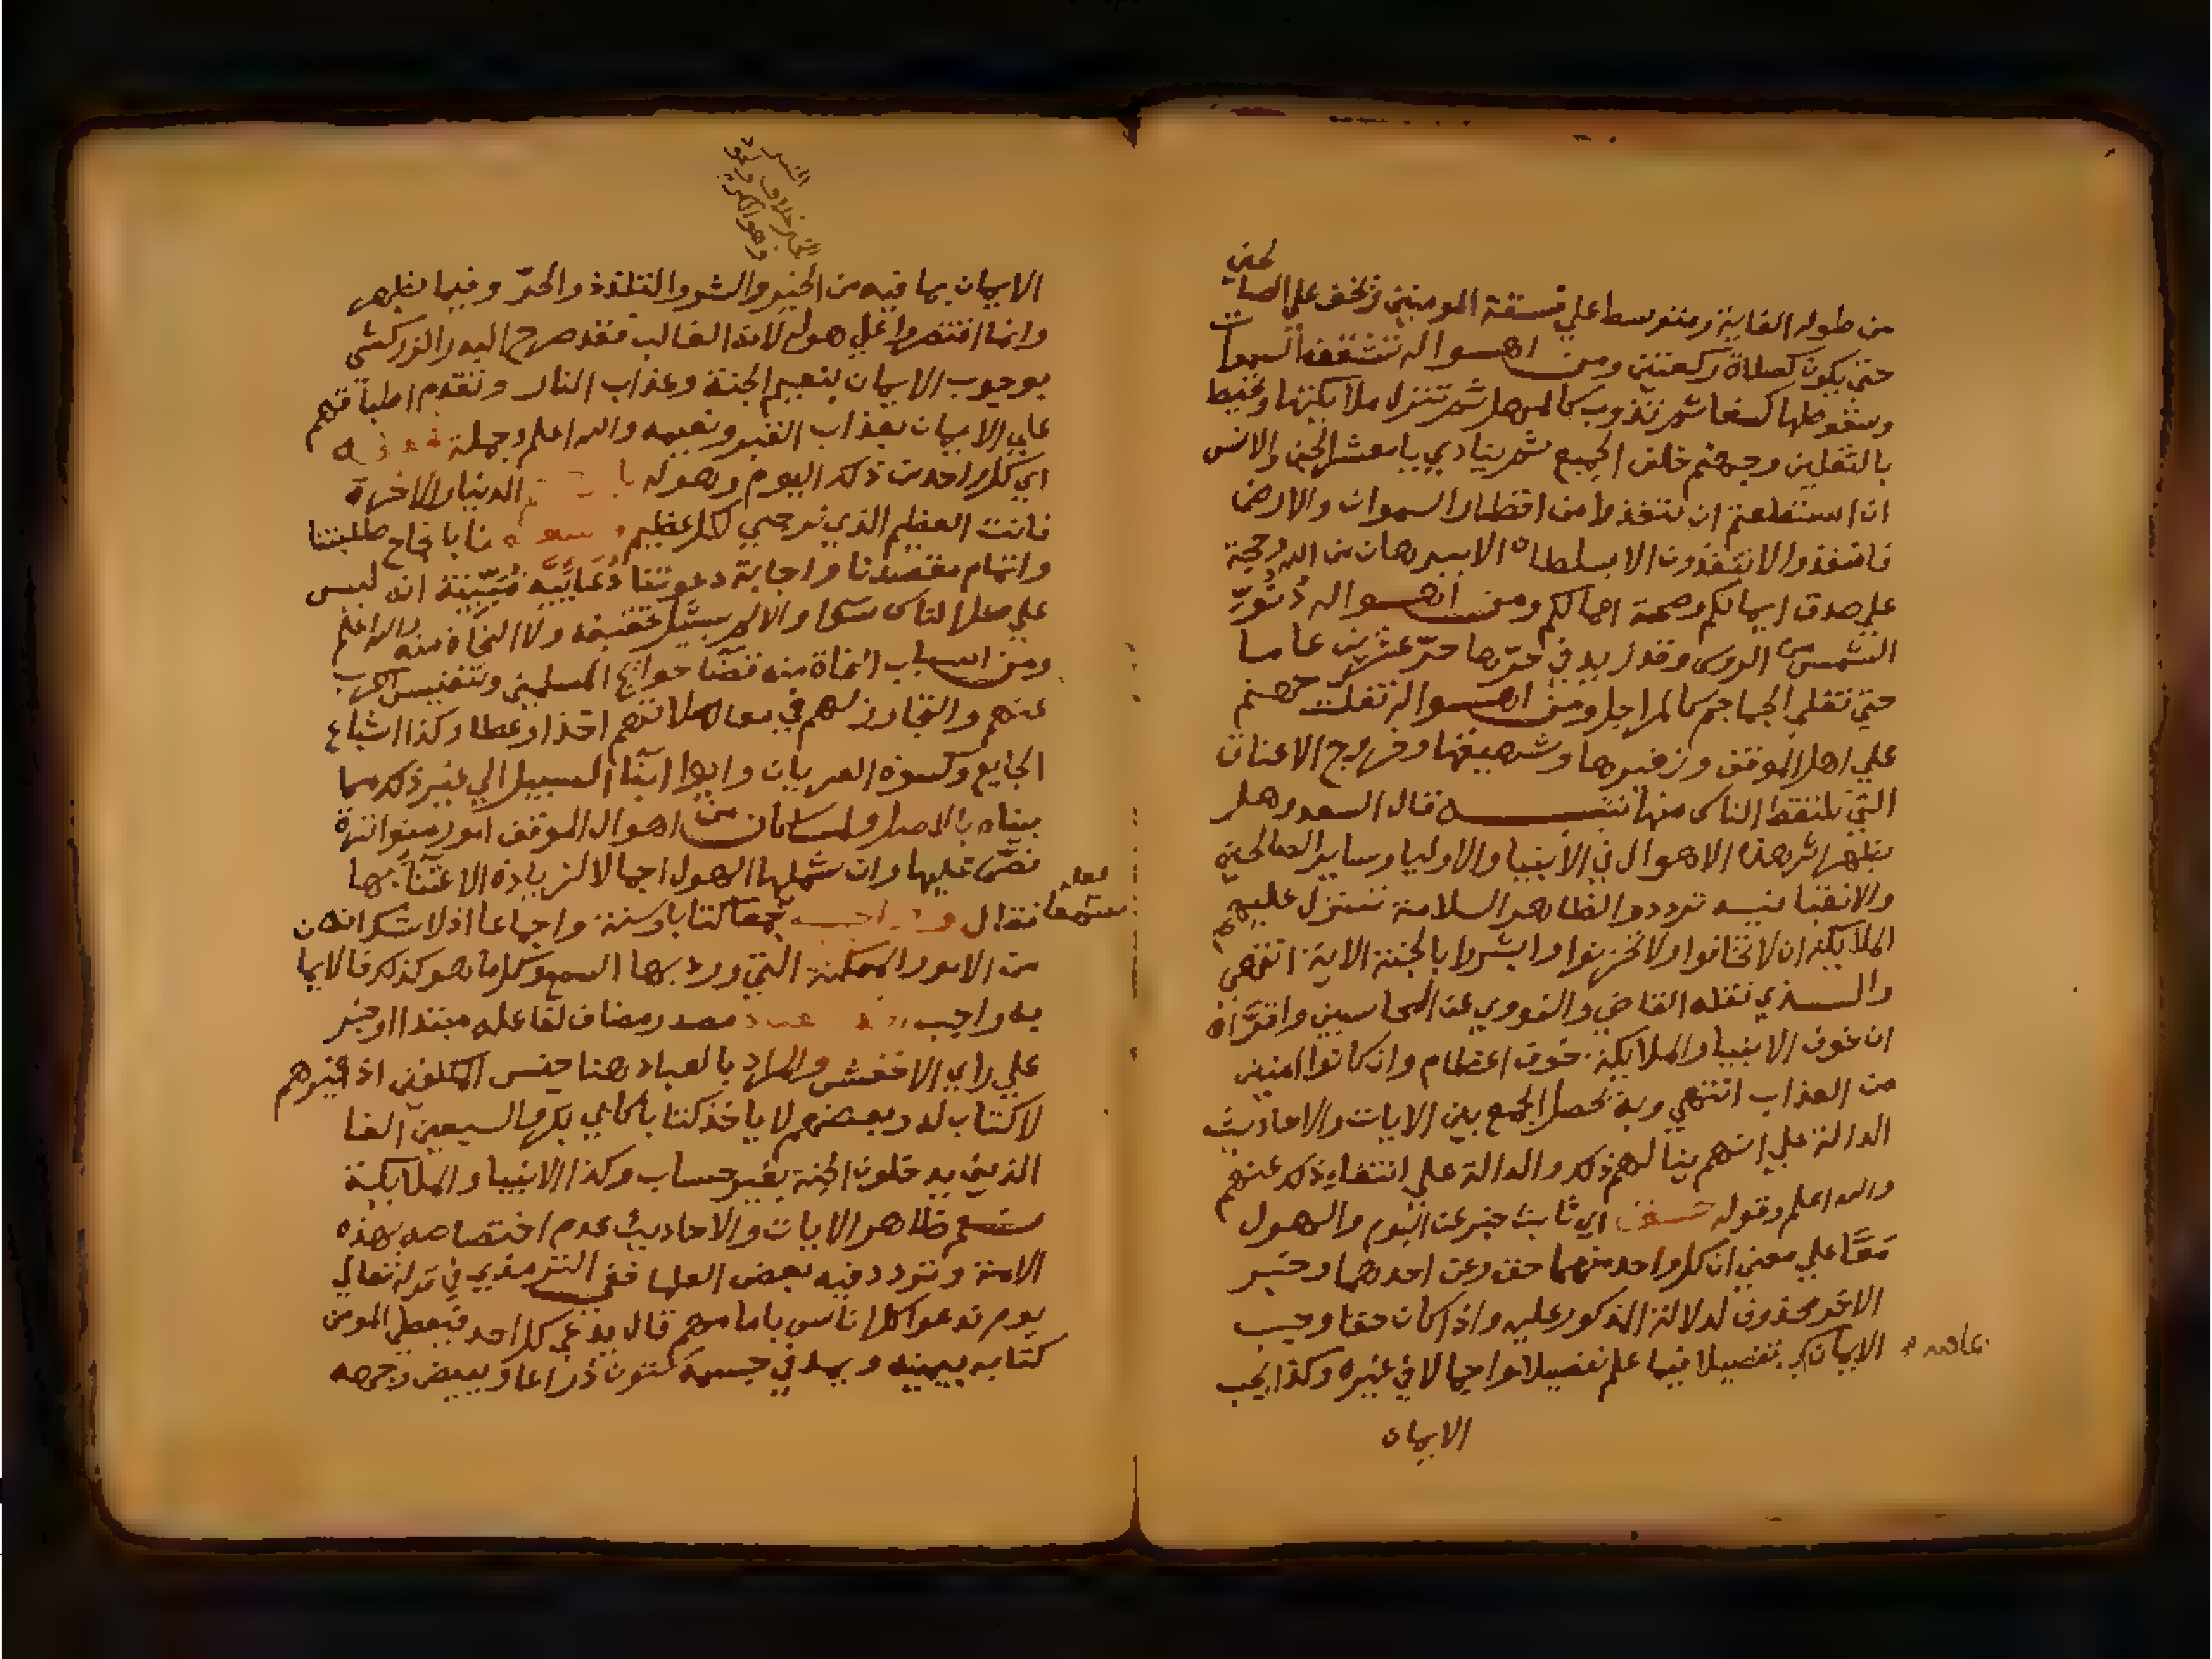 من طوله الغاية ومتوسط علي فسقة المومنين ويخف علي الصالحين
حتي يكون كصلاة ركعتين ومن اهواله تشقق السموات
وسقوطها كسفا ثم تذوب كالمهل ثم تتنزل ملايكتها وتحيط
بالثقلين وجهنم خلف الجميع ثم ينادي يا معشر الجن والانس
ان استطعتم ان تنفذوا من اقطار السموات والارض
فانفذوا لا تنفذون الا بسلطان الا ببرهان من الله وحجة
علي صدق ايمانكم وصحة اعمالكم ومن اهواله دنو
الشمس من الروس وقد زيد في حرها حر عشرين عاما
حتي تغلي الجماجم كالمراجل ومن اهواله تفلت جهنم
علي اهل الموقف وزفيرها وشهيقها وخروج الاعناق
التي تلتقط الناس منها تنبيه قال السعد وهل
يظهر اثر هذه الاهوال في الانبيا والاوليا وساير الصالحين
والاتقيا فيه تردد والظاهر السلامة تتنزل عليهم
الملايكة ان لا تخافوا ولا تحزنوا وابشروا بالجنة الاية انتهي
والذي نقله القاضي والنووي عن المحاسبي واقراه
ان خوف الانبيا والملايكة خوف اعظام وان كانوا امنين
من العذاب انتهي وبه يحصل الجمع بين الايات والاحاديث
الدالة علي انهم ينالهم ذلك والدالة علي انتفاء ذلك عنهم
والله اعلم وقوله حق اي ثابت خبر عن اليوم والهول
معا علي معني ان كل واحد منهما حق وعن احدهما وخبر
الاخر محذوف لدلالة المذكور عليه واذا كان حقا وجب
الايمان به تفصيلا فيما علم تفصيلا واجمالا في غيره وكذا يجب
الايمان
الايمان بما فيه من الخير والشر والتلذذ والحر وفيما يظهر
وانما اقتصروا علي هوله لانه الغالب فقد صرح البدر الزركشي
بوجوب الايمان بنعيم الجنة وعذاب النار وتقدم اطباقهم
علي الايمان بعذاب القبر ونعيمه والله اعلم وجملة
اي كل واحد من ذلك اليوم وهوله الدنيا والاخرة
فانت العظيم الذي ترجي لكل عظيم بانجاح طلبتنا
واتمام مقصدنا واجابة دعوتنا دعائية مبينة انه ليس
علي الناس سوا والا لم يسئل تخفيفه ولا النجاة منه والله اعلم
ومن اسباب النجاة منه قضا حوايج المسلمين وتنفيس الكرب
عنهم والتجاوز لهم في معاملاتهم اخذا وعطا وكذا اشباع
الجايع وكسوة العريان وايوا ابنا السبيل الي غير ذلك مما
بيناه بالاصل ولما كان من اهوال الموقف امور متواترة
نص عليها وان شملها الهول اجمالا لزيادة الاعتنا بها
فقال وواجب كتابا وسنة واجماعا اذ لا شك انه من
من الامور الممكنة التي ورد بها السمع وكل ما هو كذلك فالايما
به واجب مصدر مضاف لفاعله مبتدا او خبر
علي راي الاخفش والمراد بالعباد هنا جنس المكلفين اذ غيرهم
لا كتاب له وبعضهم لا ياخذ كتابا كابي بكر والسبعين الفا
الذين يدخلون الجنة بغير حساب وكذا الانبيا والملايكة
ظاهر الايات والاحاديث عدم اختصاصه بهذه
الامة وتردد فيه بعض العلما ففي الترمذي في قوله تعالي
يوم ندعوا كل اناس بامامهم قال يدعي كل احد فيعطي المومن
كتابه بيمينه ويمد في جسمه ستون ذراعا ويبيض وجهه